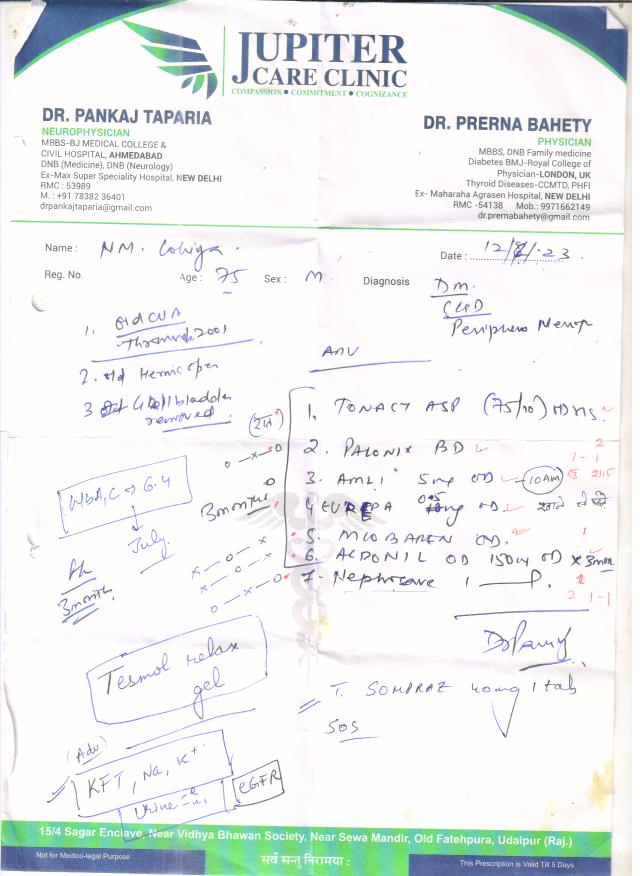 JUPITER
CARE CLINIC
COMPASSION • COMMITMENT • COGNIZANCE
DR. PANKAJ TAPARIA
NEUROPHYSICIAN
MBBS-BJ MEDICAL COLLEGE &
CIVIL HOSPITAL, AHMEDABAD
DNB (Medicine), DNB (Neurology)
Ex-Max Super Speciality Hospital, NEW DELHI
RMC : 53989
M. : +91 78382 36401
drpankajtaparia@gmail.com
DR. PRERNA BAHETY
PHYSICIAN
MBBS, DNB Family medicine
Diabetes BMJ-Royal College of
Physician-LONDON, UK
Thyroid Diseases-CCMTD, PHFI
Ex- Maharaha Agrasen Hospital, NEW DELHI
RMC -54138 Mob.: 9971662149
dr.prernabahety@gmail.com
Name : NM.
Date :
Reg. No. Age : 75 Sex : M Diagnosis DM.
1. Old CVA
2001
2. old
3 Gallbladder
removed.
Adv
1. TONACT ASP (75/10)
2. PALONIX BD
3. AMLI 5mg OD 10AM
4 0.5 OD
5. OD.
6. OD 150mg OD x 3mon
7. Nephrosave 1
HbA1C → 6.4
July.
3 months
3 month
Tesmol relax
gel
T. SOMPRAZ 40mg 1 tab
SOS
(Adv)
KFT, Na, K+
Urine
eGFR
15/4 Sagar Enclave, Near Vidhya Bhawan Society, Near Sewa Mandir, Old Fatehpura, Udaipur (Raj.)
Not for Medico-legal Purpose
सर्वे सन्तु निरामया :
This Prescription is Valid Till 5 Days